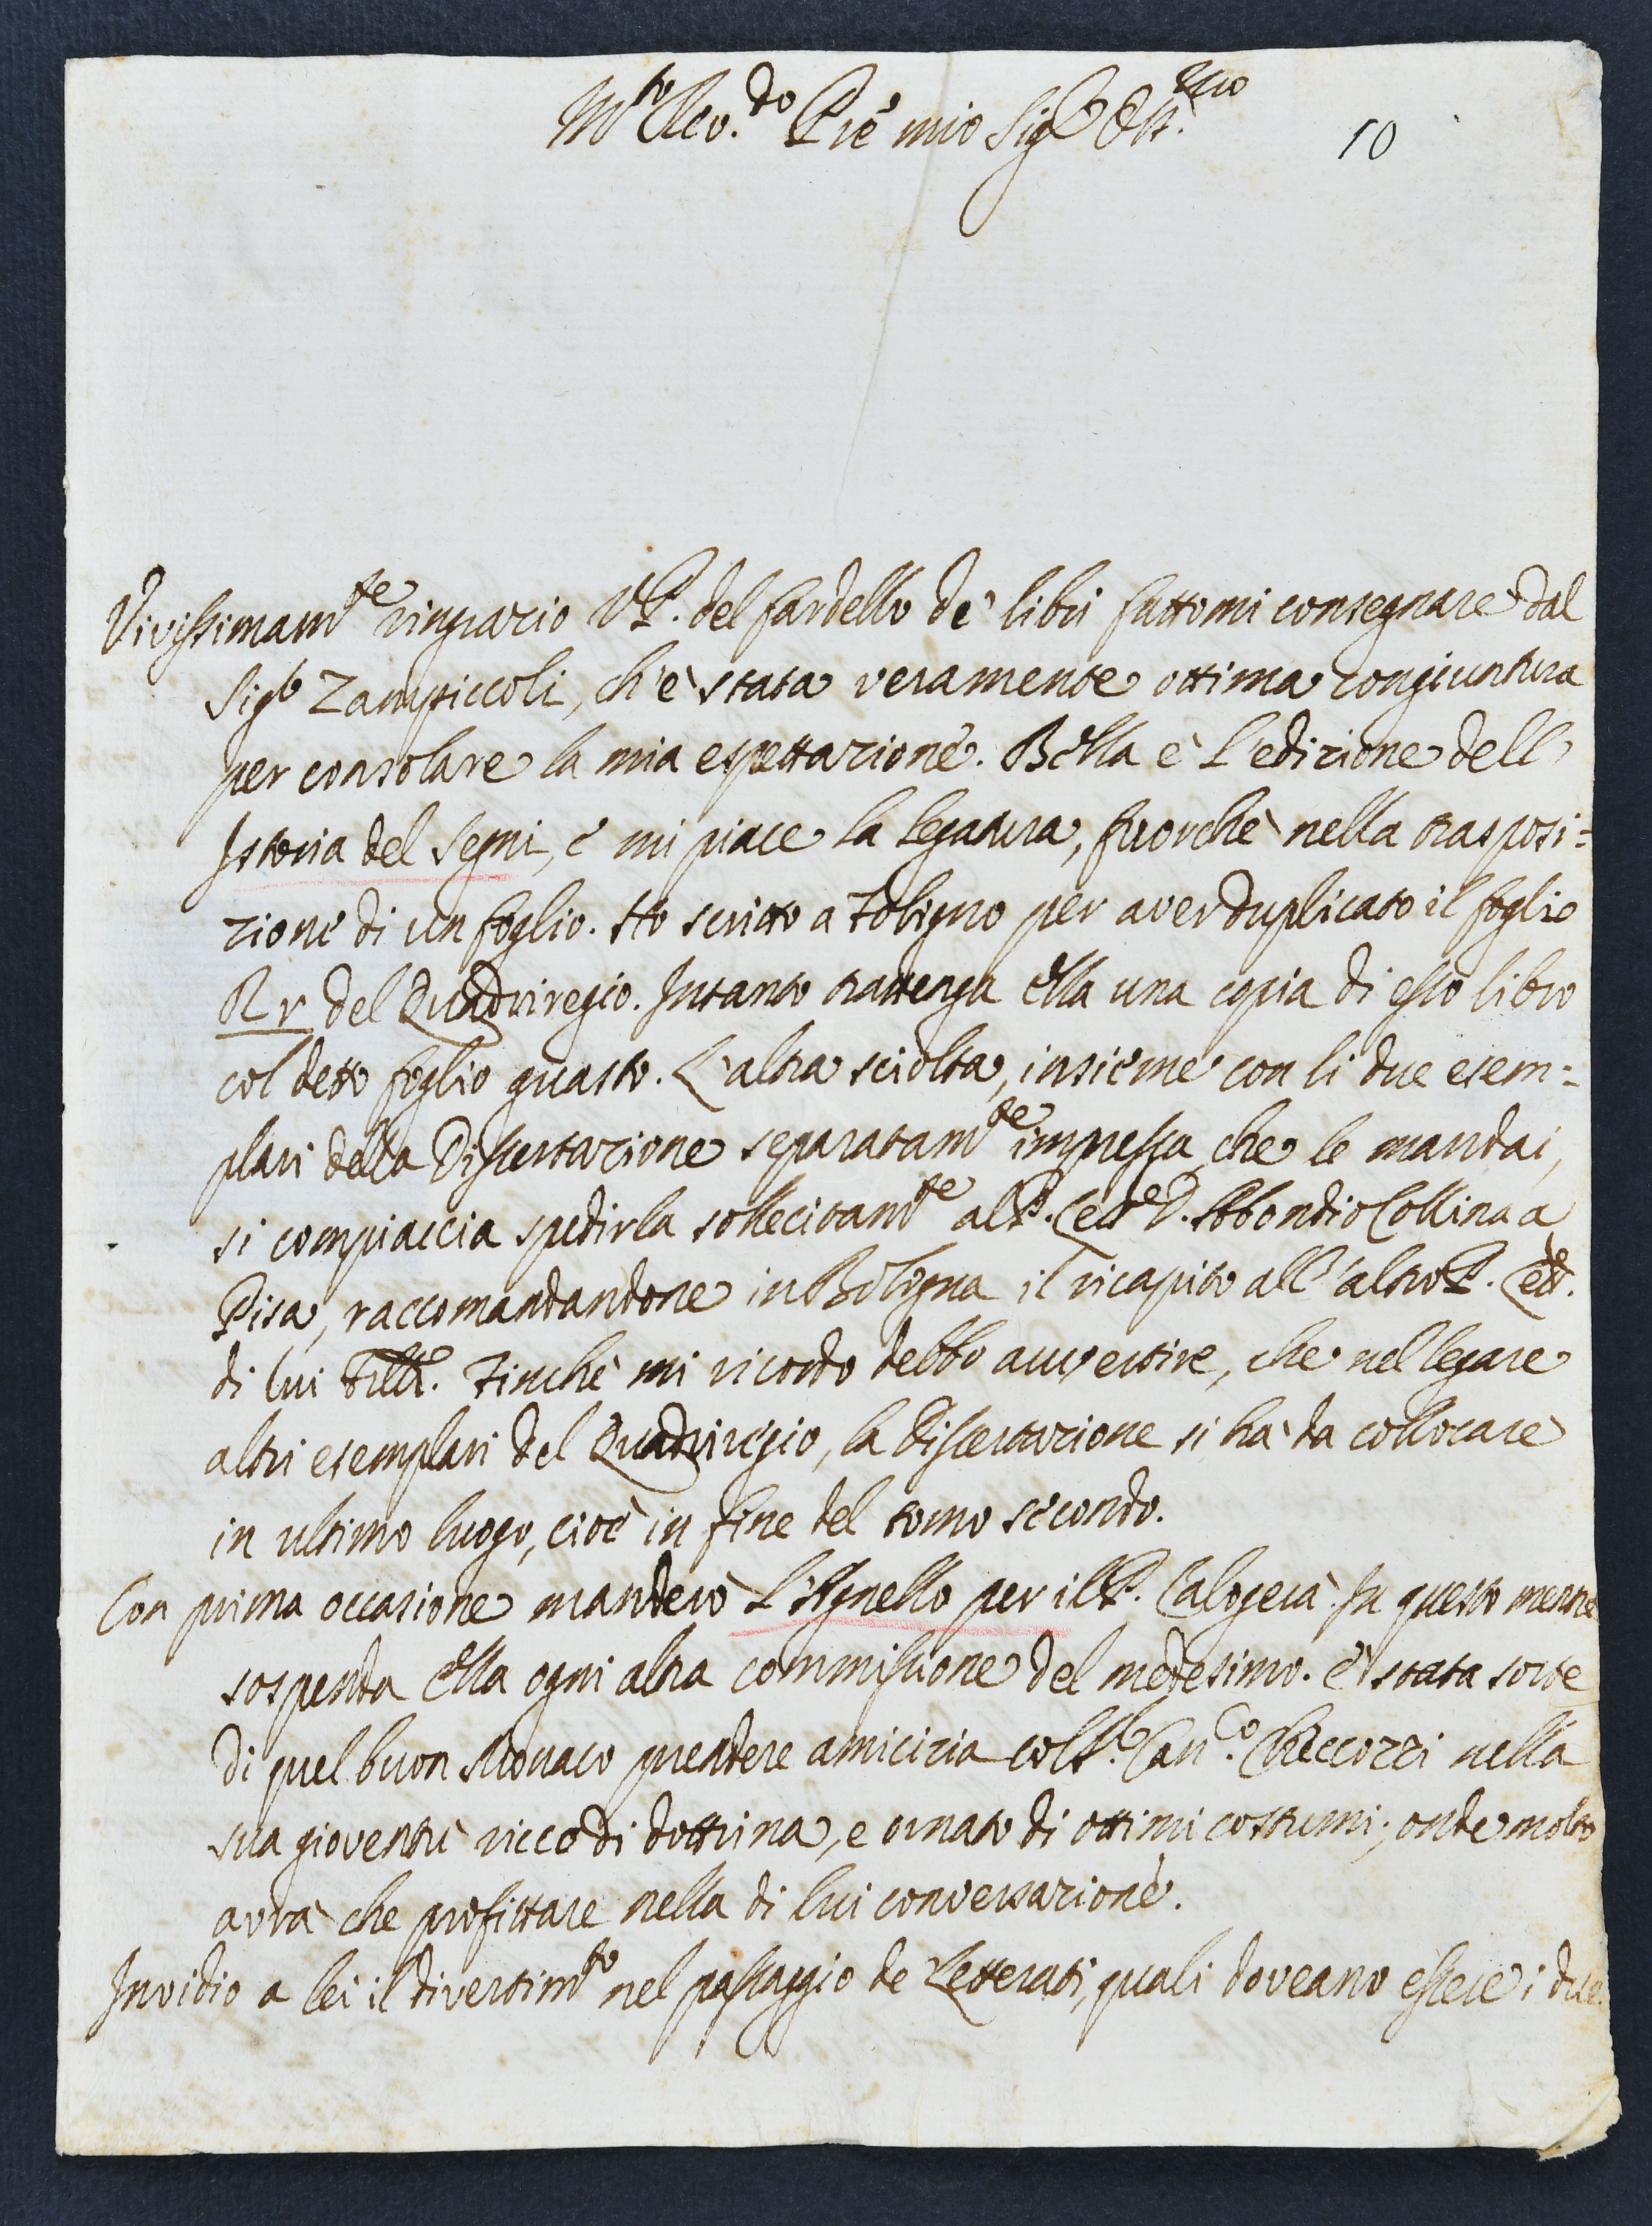 M.to Rev.do Pre mio Sig.r Oss.mo
10
Vivissimam.te ringrazio V.P. del fardello de' libri fattomi consegnare dal
Sig.r Zampiccoli, ch'è stata veramente ottima congiuntura
per consolare la mia espettazione. Bella è l'edizione dell'
Istoria del Segni, e mi piace la legatura, fuorchè nella trasposi=
zione di un foglio. Ho scritto a Foligno per aver duplicato il foglio
Rr del Quadriregio. Intanto trattenga ella una copia di esso libro
col detto foglio guasto. L'altra sciolta, insieme con li due esem=
plari della Dissertazione separatam.te impressa, che le mandai,
si compiaccia spedirla sollecitam.te al P. D. Abbondio Collina a
Pisa, raccomandandone in Bologna il ricapito all'altro P.
di lui Fratello. Finchè mi ricordo debbo avvertire, che nel legare
altri esemplari del Quadriregio, la Dissertazione si ha da collocare
in ultimo luogo, cioè in fine del tomo secondo.
Con prima occasione manderò l'Agnello per il P. Calogerà. In questo mentre
sospenda ella ogni altra commissione del medesimo. è stata sorte
di quel buon Monaco prendere amicizia col S.r Can.co Checcozzi nella
sua gioventù ricco di dottrina, e ornato di ottimi costumi; onde molto
avrà che profittare nella di lui conversazione.
Invidio a lei il divertim.to nel passaggio de Letterati, quali doveano essere i due